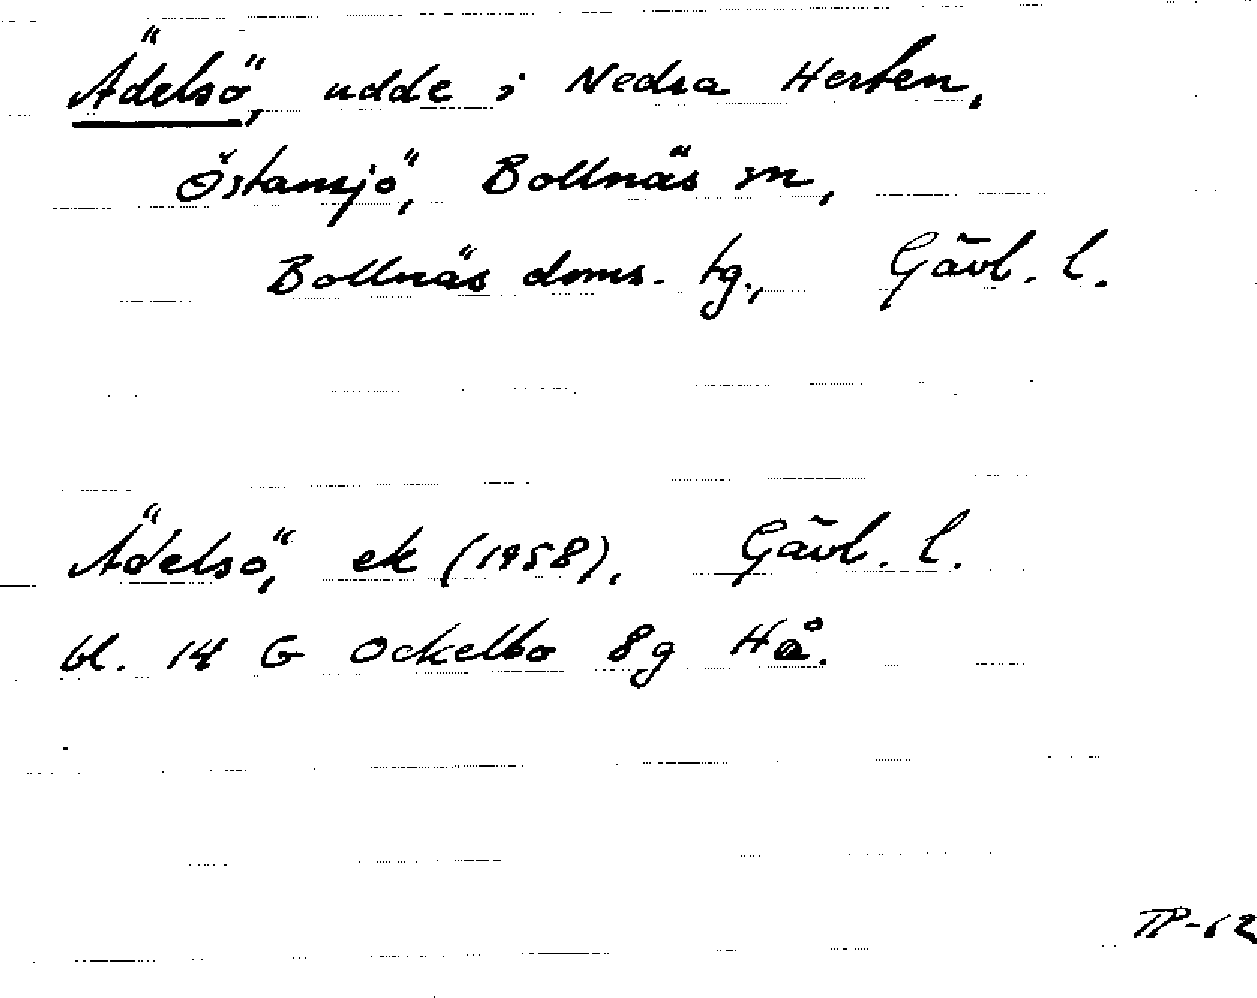 Ädelsö, udde i Nedra Herten,
Östansjö, Bollnäs m,
Bollnäs doms. tg., Gävl. l.
Ädelsö, ek (1958), Gävl. l.
bl. 14 G Ockelbo 8g Hå.
TP-62